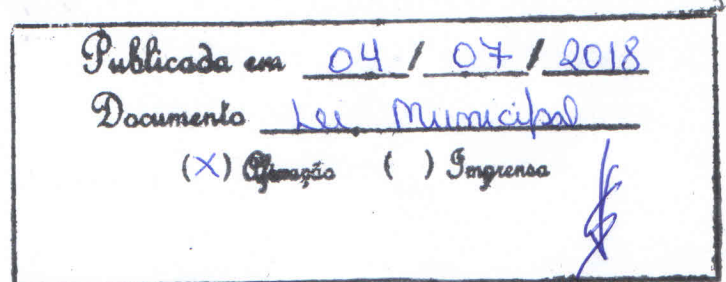 Publicada em 04 / 07 / 2018
Documento Lei Municipal
(X) Afixação ( ) Imprensa